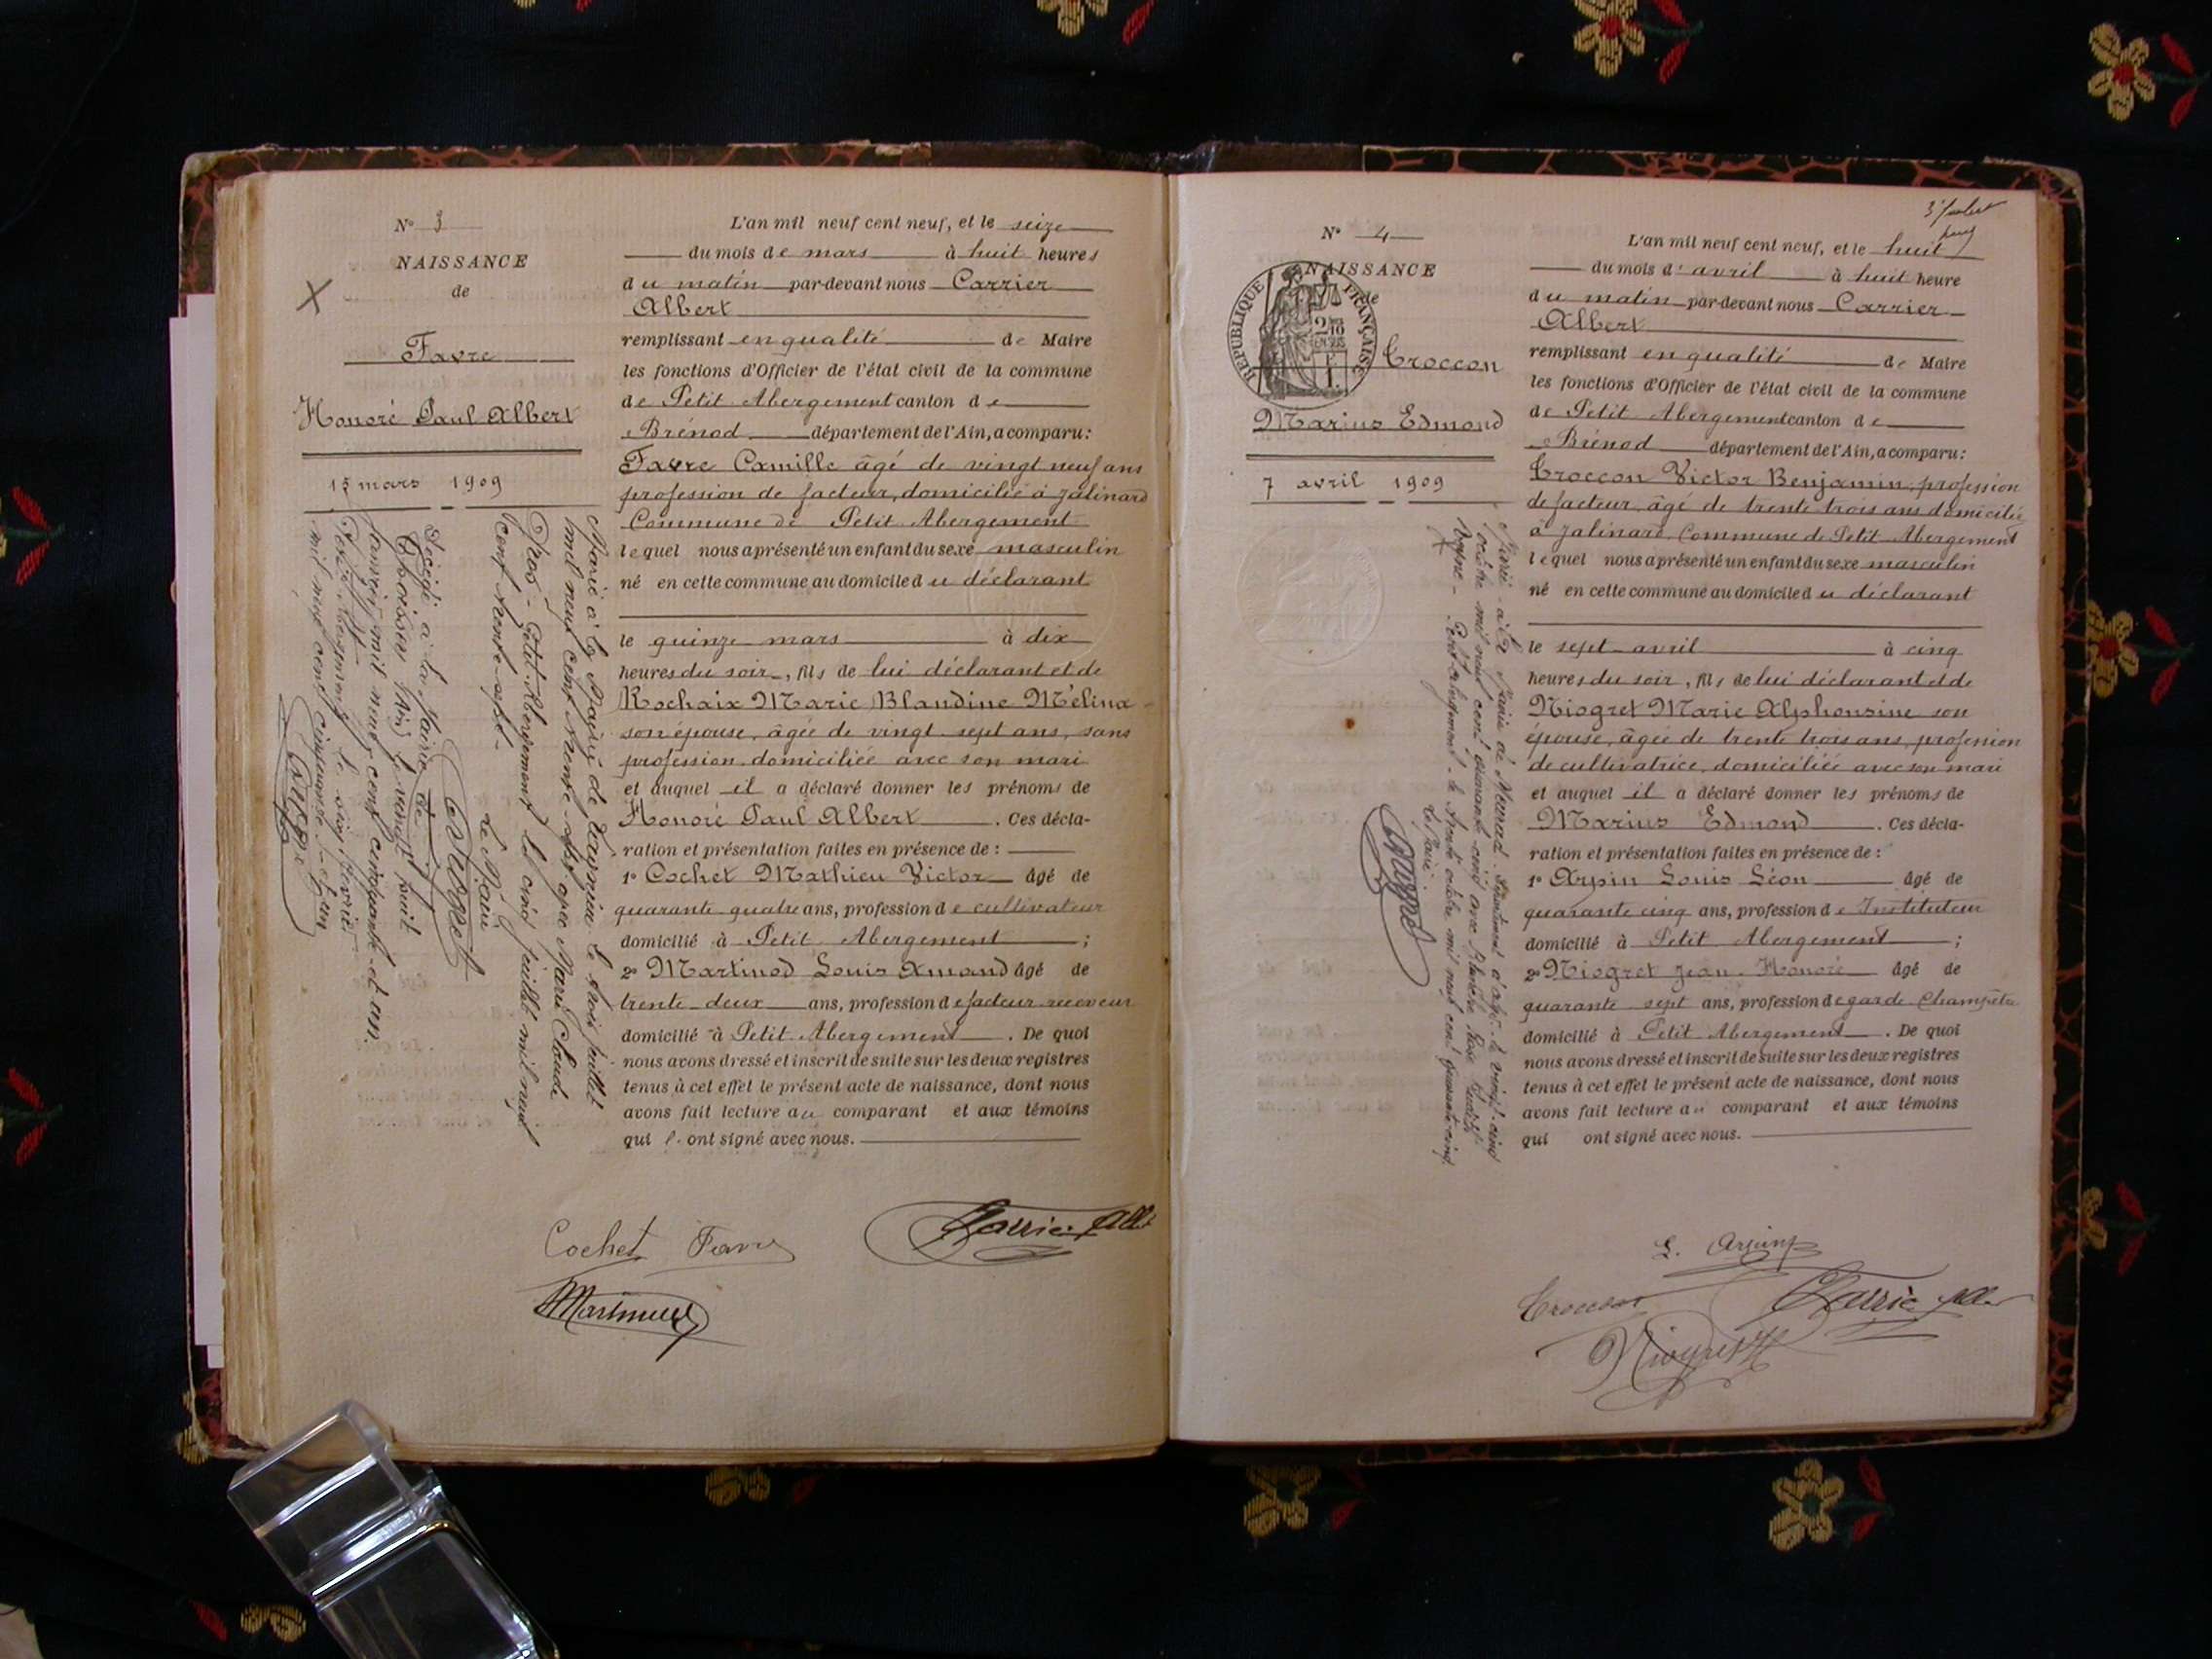 N° 3
NAISSANCE
de
Favre
Honoré Paul Albert
15 mars 1909
Marié à la Mairie de le trois juillet
mil neuf cent trente-sept avec Marie Claude
Petit-Abergement le cinq juillet mil neuf
cent trente-sept.
Le Maire
Décédé à
le vingt huit
janvier mil neuf cent cinquante et un.
Petit-Abergement le six février
mil neuf cent cinquante et un
L'an mil neuf cent neuf, et le seize
du mois de mars à huit heures
du matin par-devant nous Carrier
Albert
remplissant en qualité de Maire
les fonctions d'Officier de l'état civil de la commune
de Petit Abergement canton de
Brénod département de l'Ain, a comparu:
Favre Camille âgé de vingt neuf ans
profession de facteur, domicilié à Jalinard
Commune de Petit Abergement
lequel nous a présenté un enfant du sexe masculin
né en cette commune au domicile du déclarant
le quinze mars à dix
heures du soir, fils de lui déclarant et de
Rochaix Marie Blandine Mélina
son épouse, âgée de vingt sept ans, sans
profession domiciliée avec son mari
et auquel il a déclaré donner les prénoms de
Honoré Paul Albert. Ces décla-
ration et présentation faites en présence de :
1° Cochet Mathieu Victor âgé de
quarante quatre ans, profession de cultivateur
domicilié à Petit Abergement ;
2° Martinod Louis Amand âgé de
trente deux ans, profession de facteur receveur
domicilié à Petit Abergement. De quoi
nous avons dressé et inscrit de suite sur les deux registres
tenus à cet effet le présent acte de naissance, dont nous
avons fait lecture au comparant et aux témoins
qui ont signé avec nous.
Cochet Favre Carrier Albt
Martinod
N° 4
NAISSANCE
de
RÉPUBLIQUE FRANÇAISE
Croccon
Marius Edmond
7 avril 1909
Marié à la Mairie de le vingt-cinq
octobre mil neuf cent quarante-cinq avec Blanche Rose
Petit-Abergement le trente octobre mil neuf cent quarante-cinq.
Le Maire
L'an mil neuf cent neuf, et le huit
du mois d'avril à huit heure
du matin par-devant nous Carrier
Albert
remplissant en qualité de Maire
les fonctions d'Officier de l'état civil de la commune
de Petit Abergement canton de
Brénod département de l'Ain, a comparu:
Croccon Victor Benjamin, profession
de facteur, âgé de trente trois ans domicilié
à Jalinard, Commune de Petit Abergement
lequel nous a présenté un enfant du sexe masculin
né en cette commune au domicile du déclarant
le sept avril à cinq
heures du soir, fils de lui déclarant et de
Niogret Marie Alphonsine son
épouse, âgée de trente trois ans, profession
de cultivatrice, domiciliée avec son mari
et auquel il a déclaré donner les prénoms de
Marius Edmond. Ces décla-
ration et présentation faites en présence de :
1° Arpin Louis Léon âgé de
quarante cinq ans, profession de Instituteur
domicilié à Petit Abergement ;
2° Niogret Jean Honoré âgé de
quarante sept ans, profession de garde Champêtre
domicilié à Petit Abergement. De quoi
nous avons dressé et inscrit de suite sur les deux registres
tenus à cet effet le présent acte de naissance, dont nous
avons fait lecture au comparant et aux témoins
qui ont signé avec nous.
L. Arpin
Croccon Carrier
Niogret